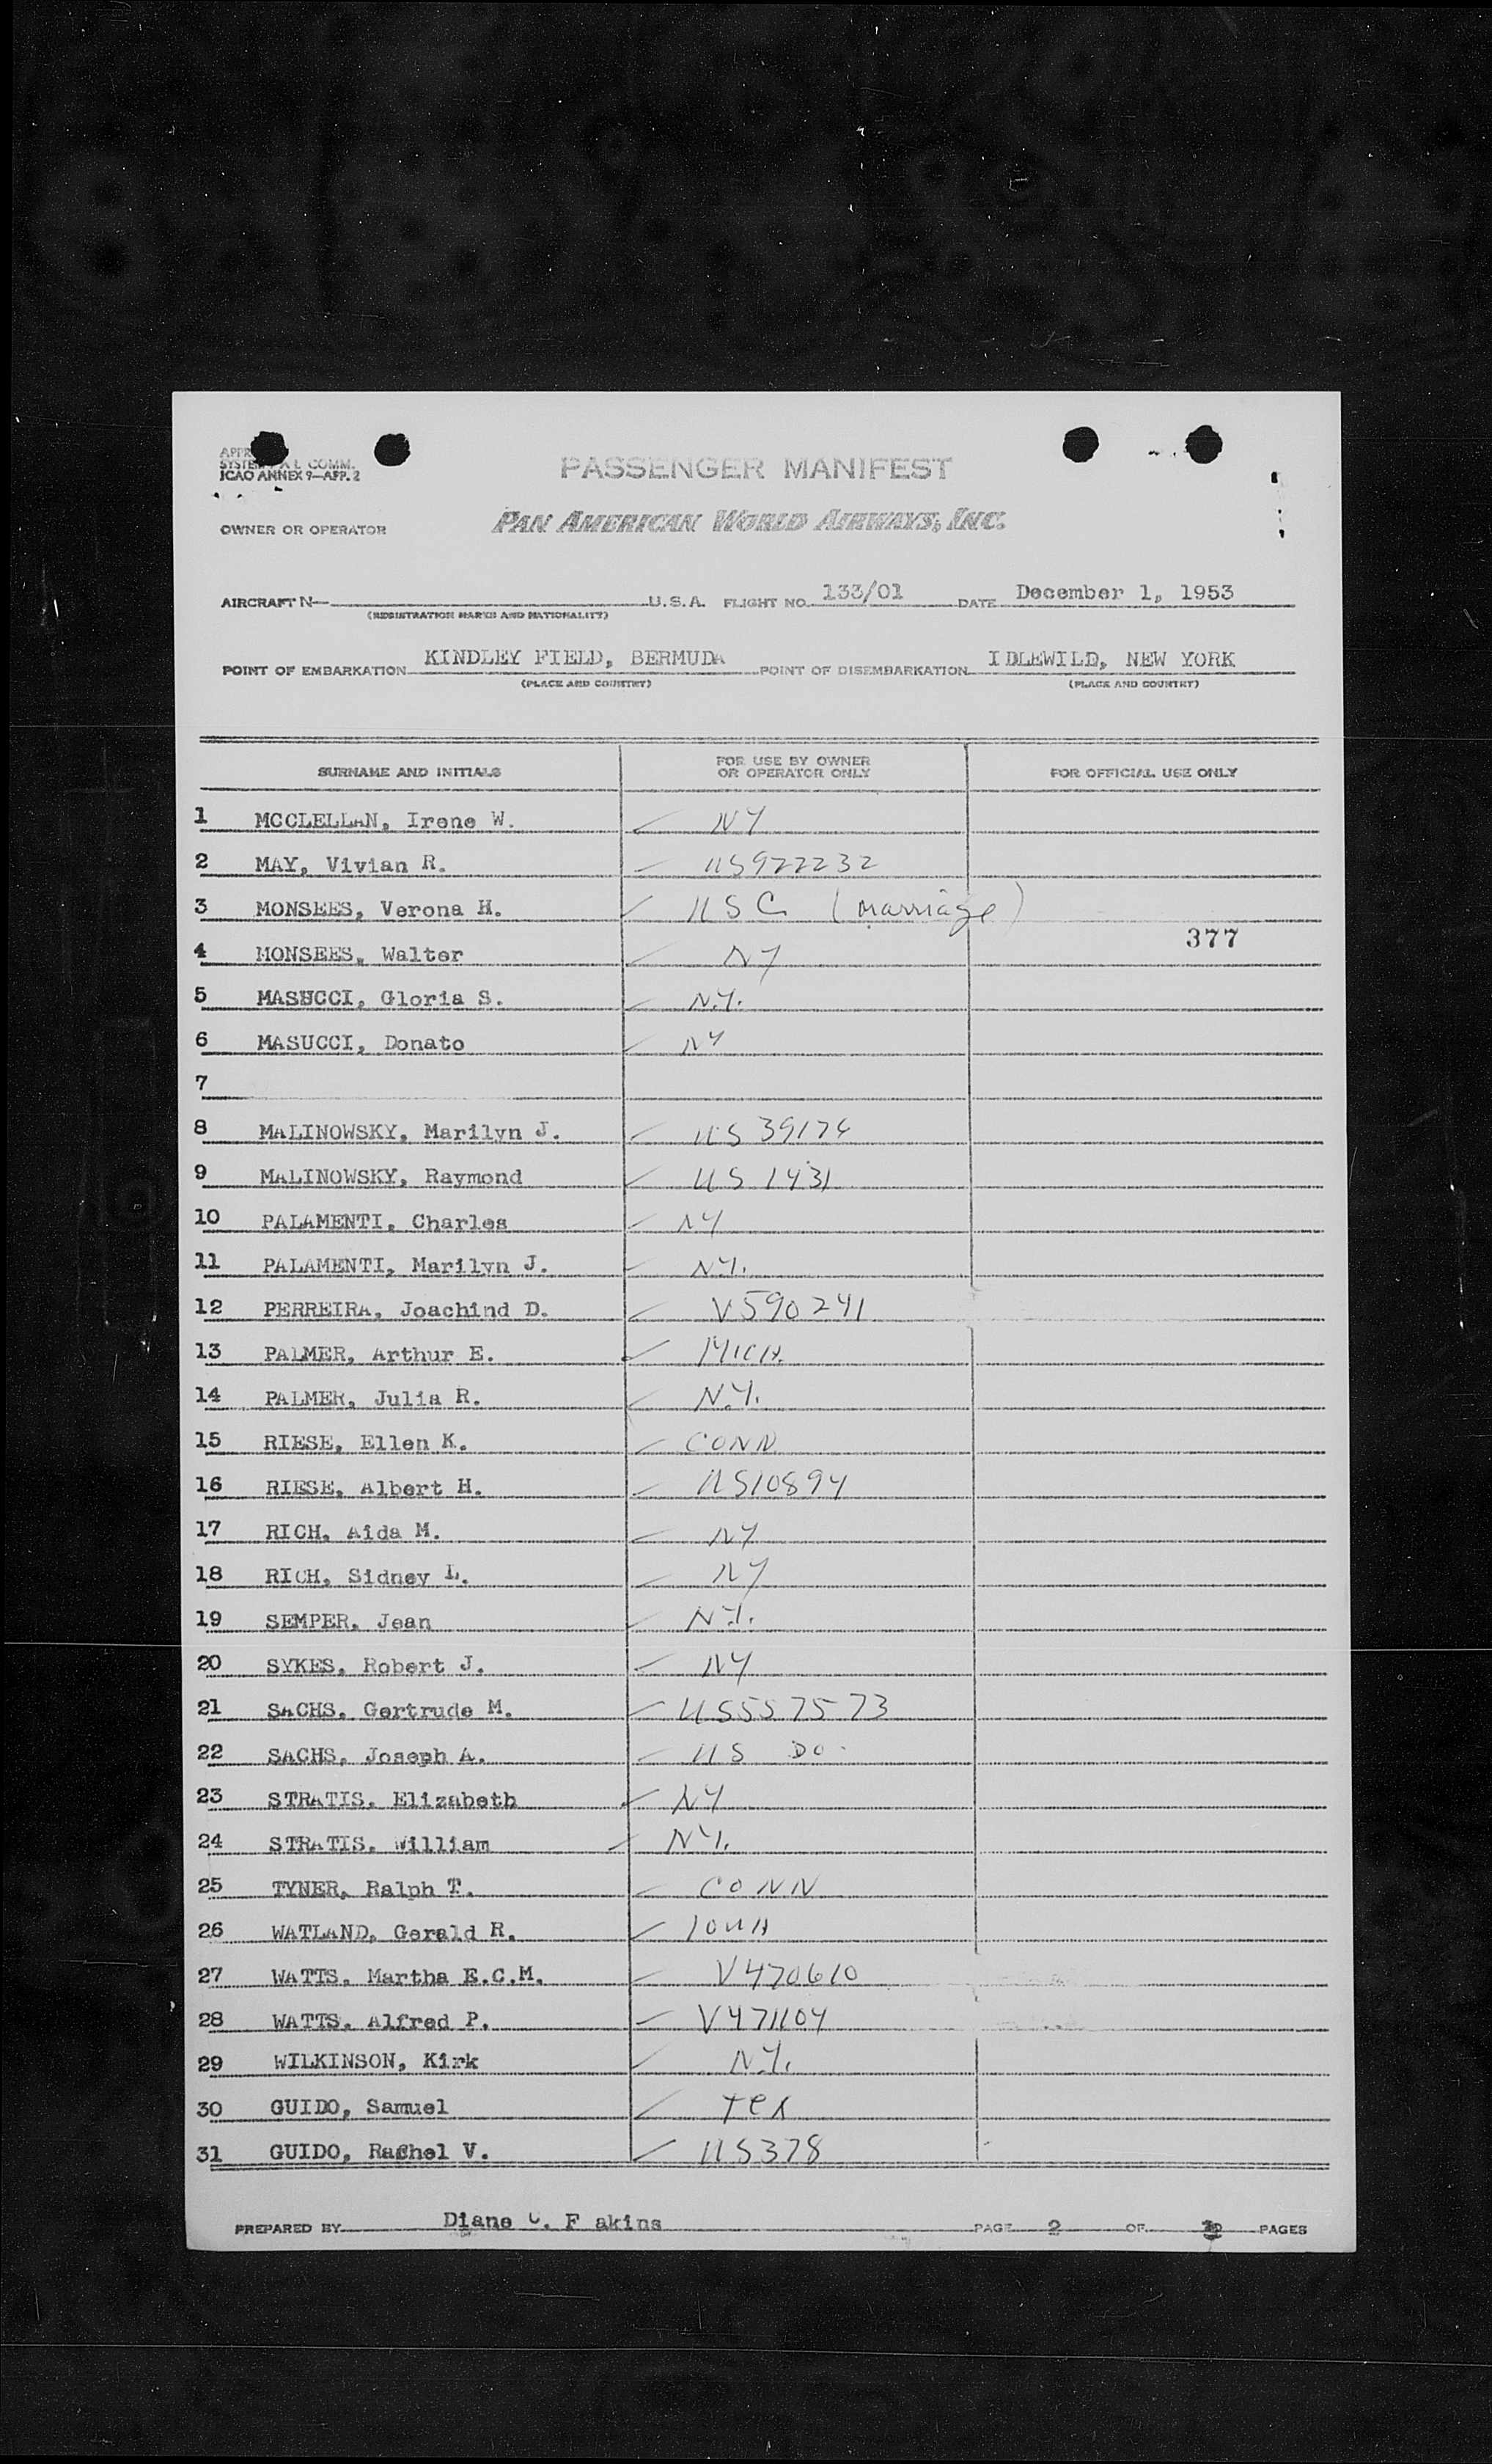 PASSENGER MANIFEST
SYSTEM COMM.
ICAO ANNEX 9—APP. 2
OWNER OR OPERATOR PAN AMERICAN WORLD AIRWAYS, INC.
AIRCRAFT N— U.S.A. FLIGHT NO. 133/01 DATE December 1, 1953
(REGISTRATION MARKS AND NATIONALITY)
POINT OF EMBARKATION KINDLEY FIELD, BERMUDA POINT OF DISEMBARKATION IDLEWILD, NEW YORK
(PLACE AND COUNTRY) (PLACE AND COUNTRY)
SURNAME AND INITIALS FOR USE BY OWNER OR OPERATOR ONLY FOR OFFICIAL USE ONLY
1 MCCLELLAN, Irene W. ✓ NY
2 MAY, Vivian R. ✓ US922232
3 MONSEES, Verona H. ✓ USC (marriage)
377
4 MONSEES, Walter ✓ NY
5 MASUCCI, Gloria S. ✓ N.Y.
6 MASUCCI, Donato ✓ NY
7
8 MALINOWSKY, Marilyn J. ✓ US 39174
9 MALINOWSKY, Raymond ✓ US 1431
10 PALAMENTI, Charles ✓ NY
11 PALAMENTI, Marilyn J. ✓ N.Y.
12 PERREIRA, Joachind D. ✓ V590241
13 PALMER, Arthur E. ✓ MICH.
14 PALMER, Julia R. ✓ N.Y.
15 RIESE, Ellen K. ✓ CONN
16 RIESE, Albert H. ✓ US10894
17 RICH, Aida M. ✓ NY
18 RICH, Sidney L. ✓ NY
19 SEMPER, Jean ✓ N.Y.
20 SYKES, Robert J. ✓ NY
21 SACHS, Gertrude M. ✓ US557573
22 SACHS, Joseph A. ✓ US DO.
23 STRATIS, Elizabeth ✓ NY
24 STRATIS, William ✓ NY.
25 TYNER, Ralph T. ✓ CONN
26 WATLAND, Gerald R. ✓ IOWA
27 WATTS, Martha E.C.M. ✓ V470610
28 WATTS, Alfred P. ✓ V471104
29 WILKINSON, Kirk ✓ N.Y.
30 GUIDO, Samuel ✓ Tex
31 GUIDO, Rachel V. ✓ US378
PREPARED BY Diane C. F akins PAGE 2 OF PAGES